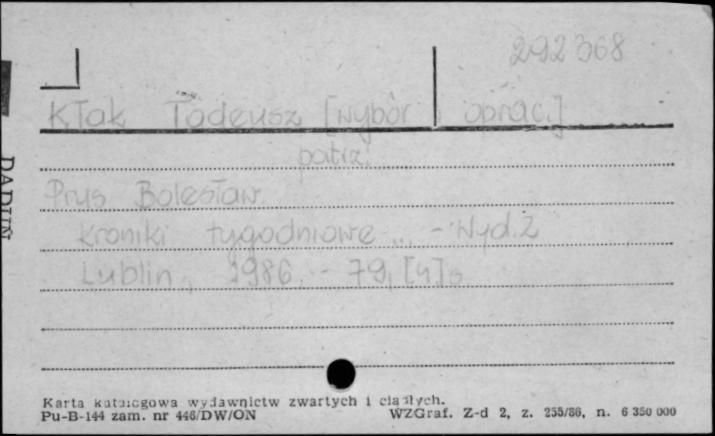 292368
Kłak Tadeusz [wybór i oprac.]
patrz:
Prus Bolesław
Kroniki tygodniowe ... - Wyd. 2
Lublin, 1986. - 79, [4] s.
Karta katalogowa wydawnictw zwartych i ciągłych.
Pu-B-144 zam. nr 446/DW/ON WZGraf. Z-d 2, z. 255/86, n. 6 350 000